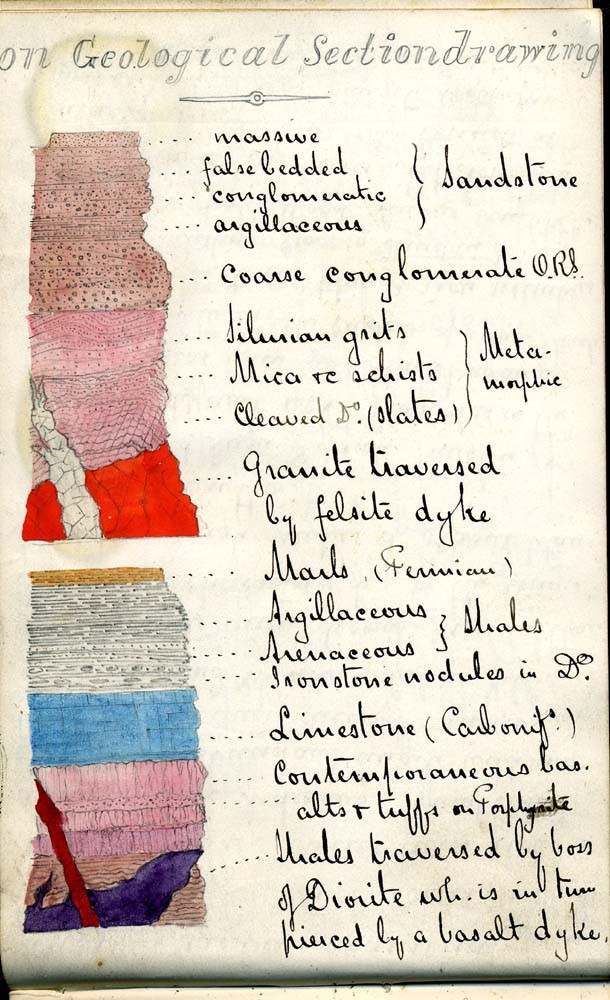 on Geological Sectiondrawing
massive
false bedded
conglomeratic
argillaceous
Sandstone
Coarse conglomerate O.R.S.
Silurian grits
Mica &c schists
Cleaved Do. (slates)
Meta-
morphic
Granite traversed
by felsite dyke
Marls, (Permian)
Argillaceous
Arenaceous
Shales
Ironstone nodules in Do.
Limestone (Carbonifs.)
Contemporaneous bas.
alts & tuffs on Porphyrite
Shales traversed by boss
of Diorite wh. is in turn
pierced by a basalt dyke.